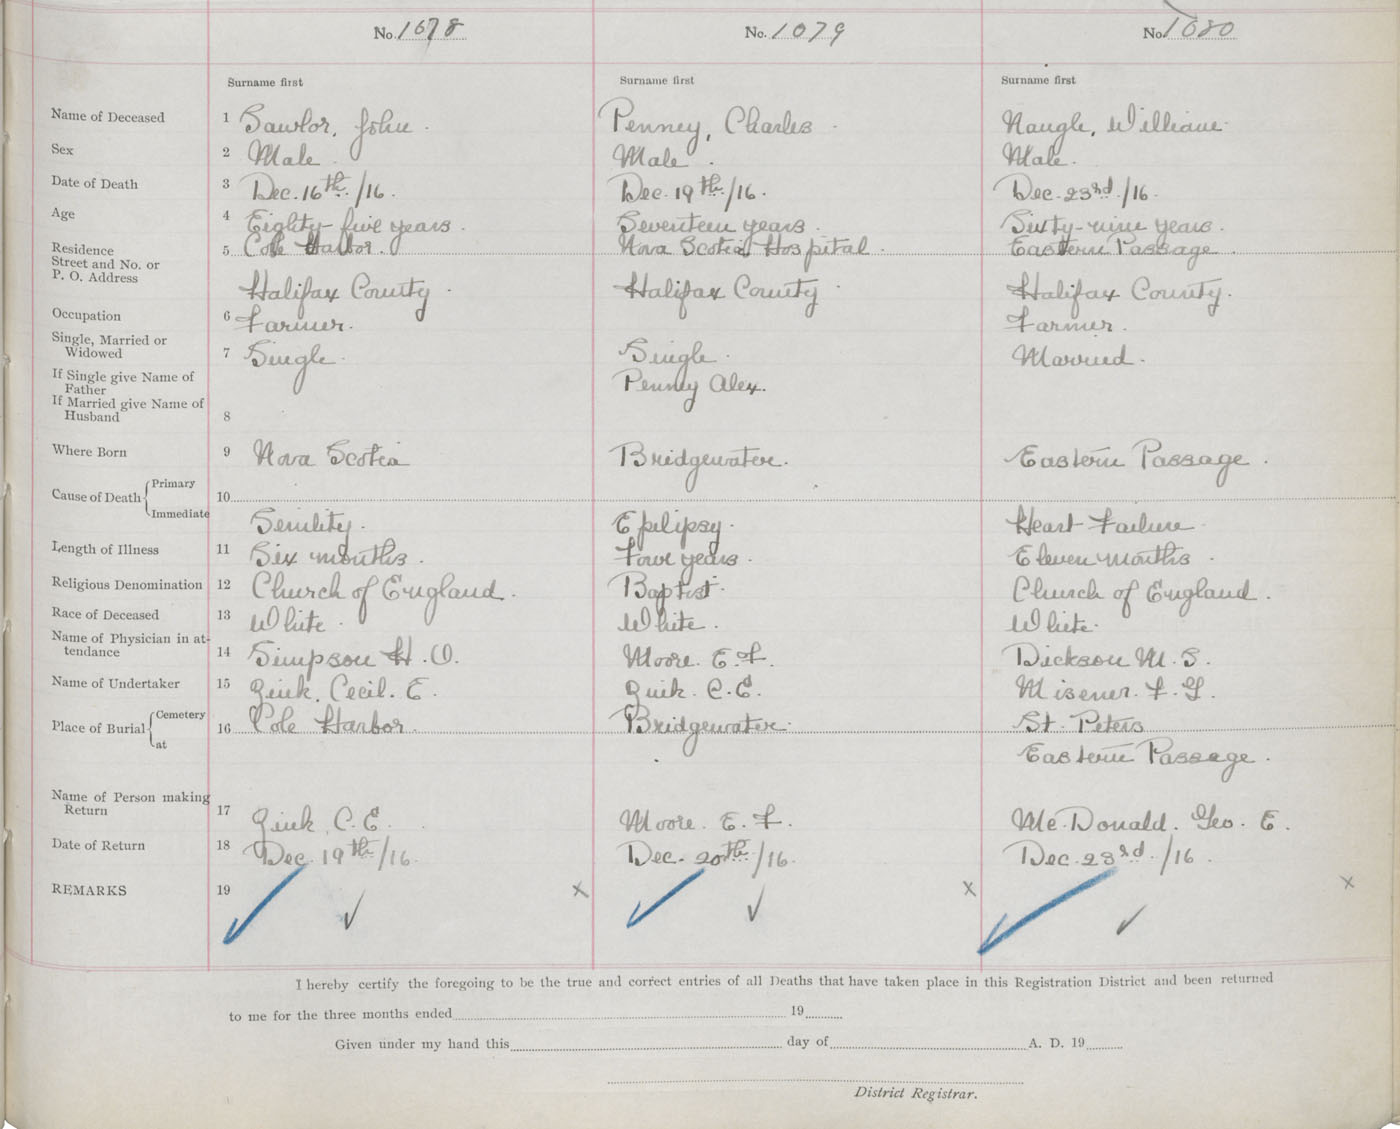 No. 1678 No. 1079 No. 1680
Surname first Surname first Surname first
Name of Deceased 1 Sawlor, John. Penney, Charles. Naugle, William.
Sex 2 Male. Male. Male.
Date of Death 3 Dec. 16th/16. Dec. 19th/16. Dec. 23rd/16.
Age 4 Eighty-five years. Seventeen years. Sixty-nine years.
Residence 5 Cole Harbor. Nova Scotia Hospital. Eastern Passage.
Street and No. or
P. O. Address
Halifax County. Halifax County. Halifax County.
Occupation 6 Farmer. Farmer.
Single, Married or
Widowed 7 Single. Single. Married.
If Single give Name of
Father Penney Alex.
If Married give Name of
Husband 8
Where Born 9 Nova Scotia Bridgewater. Eastern Passage.
Cause of Death Primary 10
Immediate Senility. Epilipsy. Heart Failure.
Length of Illness 11 Six months. Four years. Eleven months.
Religious Denomination 12 Church of England. Baptist. Church of England.
Race of Deceased 13 White. White. White.
Name of Physician in at-
tendance 14 Simpson H. O. Moore. E. F. Dickson M. S.
Name of Undertaker 15 Zink, Cecil. E. Zink. C. E. Misener. F. G.
Place of Burial Cemetery 16 Cole Harbor. Bridgewater. St. Peters
at Eastern Passage.
Name of Person making
Return 17 Zink, C. E. Moore. E. F. Mc.Donald. Geo. E.
Date of Return 18 Dec. 19th/16. Dec. 20th/16. Dec. 23rd/16.
REMARKS 19 x x x
I hereby certify the foregoing to be the true and correct entries of all Deaths that have taken place in this Registration District and been returned
to me for the three months ended 19
Given under my hand this day of A. D. 19
District Registrar.